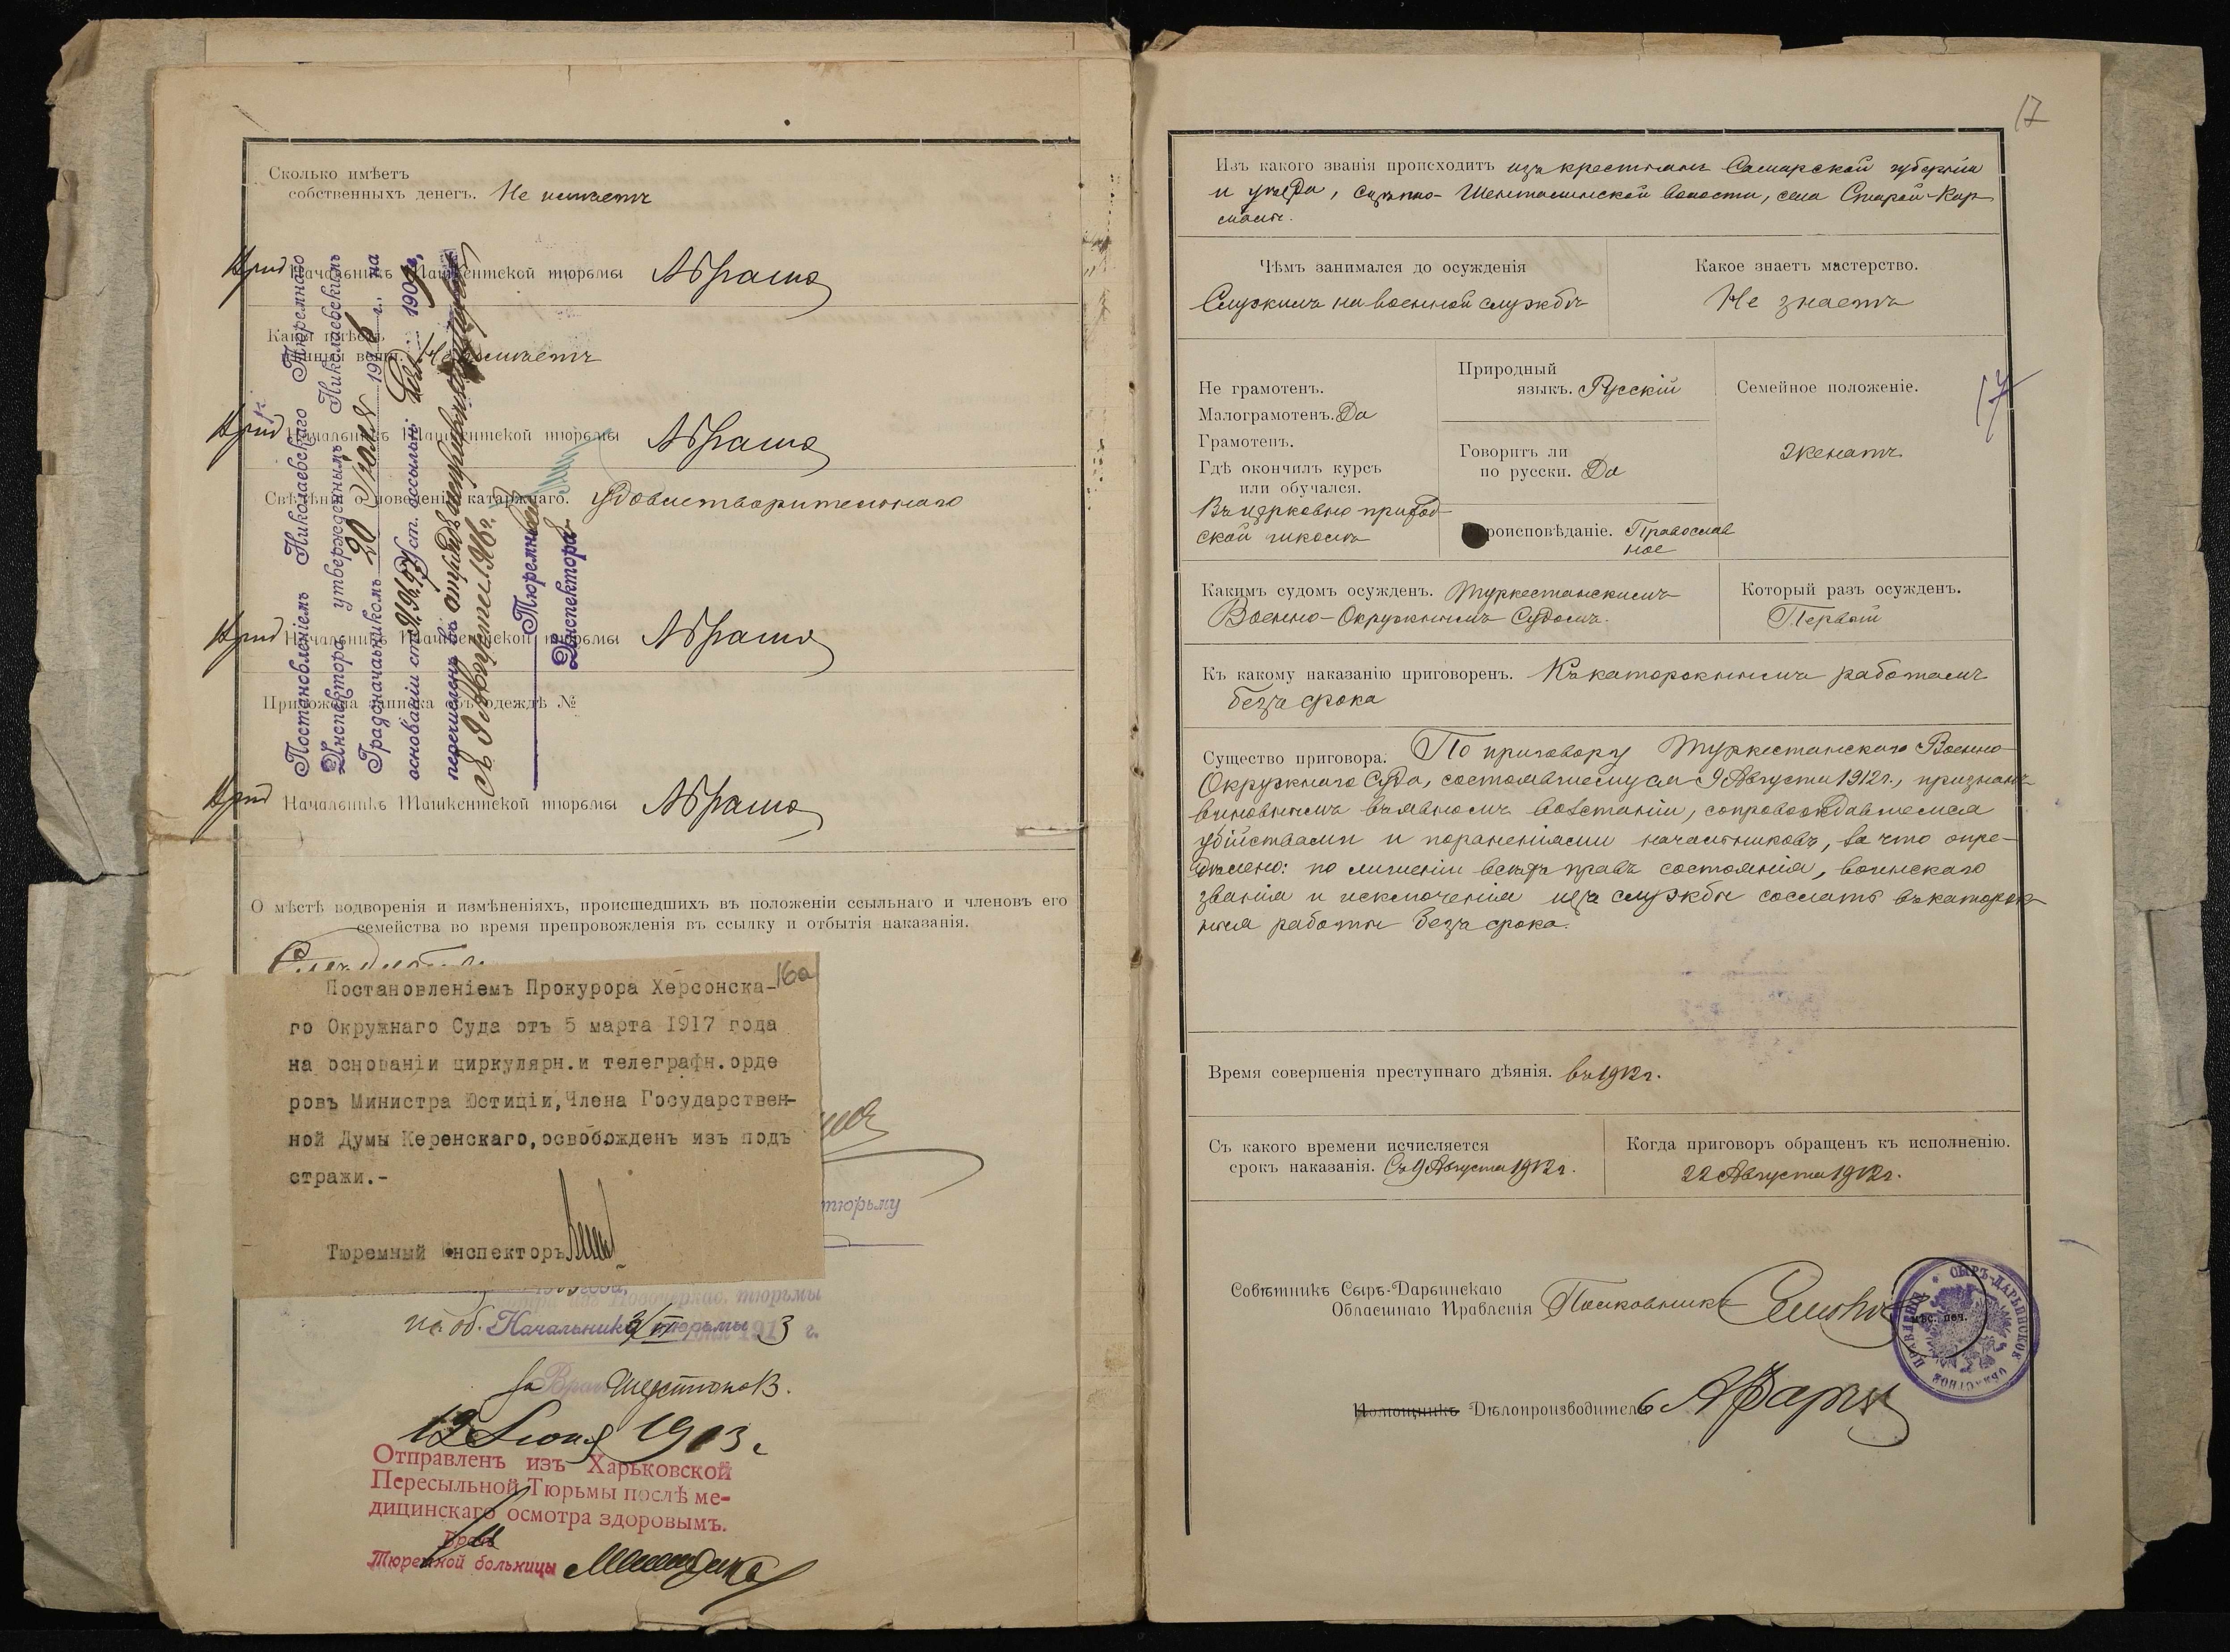 Сколько имѣетъ
собственныхъ денегъ. Не имѣетъ
Врид Начальникъ Ташкентской тюрьмы
Не имѣетъ
Врид Начальникъ Ташкентской тюрьмы
Свѣдѣнія о поведеніи каторжнаго. Удовлетворительнаго
Врид Начальникъ Ташкентской тюрьмы
Приложена записка объ одеждѣ №
Врид Начальникъ Ташкентской тюрьмы
Постановленіемъ Николаевскаго Тюремнаго
Инспектора утвержденнымъ Николаевскимъ
Градоначальникомъ 20 Іюля 1916 г. на
основаніи ст. Уст. ссыльн. 1909 г.
перечисленъ въ отрядъ исправляющихся
съ 9 Августа 1916 г.
Тюремный
Инспекторъ
О мѣстѣ водворенія и измѣненіяхъ, происшедшихъ въ положеніи ссыльнаго и членовъ его
семейства во время препровожденія въ ссылку и отбытія наказанія.
16а
Постановленіемъ Прокурора Херсонска-
го Окружнаго Суда отъ 5 марта 1917 года
на основаніи циркулярн.и телеграфн.орде
ровъ Министра Юстиціи,Члена Государствен-
ной Думы Керенскаго,освобожденъ изъ подъ
стражи.-
Тюремный Инспекторъ
тюрьму
тюрьмы
Начальника тюрьмы
за Врач
12 Іюня 1913 г
Отправленъ изъ Харьковской
Пересыльной Тюрьмы послѣ ме-
дицинскаго осмотра здоровымъ.
Врачъ
Тюремной больницы
17
Изъ какого званія происходитъ изъ крестьянъ Самарской губерніи
и уѣзда, Шенталинской волости, села Старой-Кар
малы.
Чѣмъ занимался до осужденія
Служилъ на военной службѣ
Какое знаетъ мастерство.
Не знаетъ
Не грамотенъ.
Малограмотенъ. Да
Грамотенъ.
Гдѣ окончилъ курсъ
или обучался.
Въ церковно приход-
ской школѣ
Природный
языкъ. Русскій
Говоритъ ли
по русски. Да
роисповѣданіе. Православ
ное
Семейное положеніе.
Женатъ
17
Какимъ судомъ осужденъ. Туркестанскимъ
Военно-Окружнымъ Судомъ.
Который разъ осужденъ.
Первый
Къ какому наказанію приговоренъ. Къ каторжнымъ работамъ
безъ срока
Существо приговора. По приговору Туркестанскаго Военно-
Окружнаго Суда, состоявшемуся 9 Августа 1912 г., признанъ
виновнымъ въ явномъ возстаніи, сопровождавшемся
убійствами и пораненіями начальниковъ, за что опре-
дѣлено: по лишеніи всѣхъ правъ состоянія, воинскаго
званія и исключенія изъ службы сослать въ каторж-
ныя работы безъ срока.
Время совершенія преступнаго дѣянія. въ 1912 г.
Съ какого времени исчисляется
срокъ наказанія. Съ 9 Августа 1912 г.
Когда приговоръ обращенъ къ исполненію.
22 Августа 1912 г.
Совѣтникъ Сыръ-Дарьинскаго
Областнаго Правленія Полковникъ
СЫРЪ-ДАРЬИНСКОЕ ОБЛАСТНОЕ ПРАВЛЕНІЕ
мѣс. печ.
Помощникъ Дѣлопроизводитель